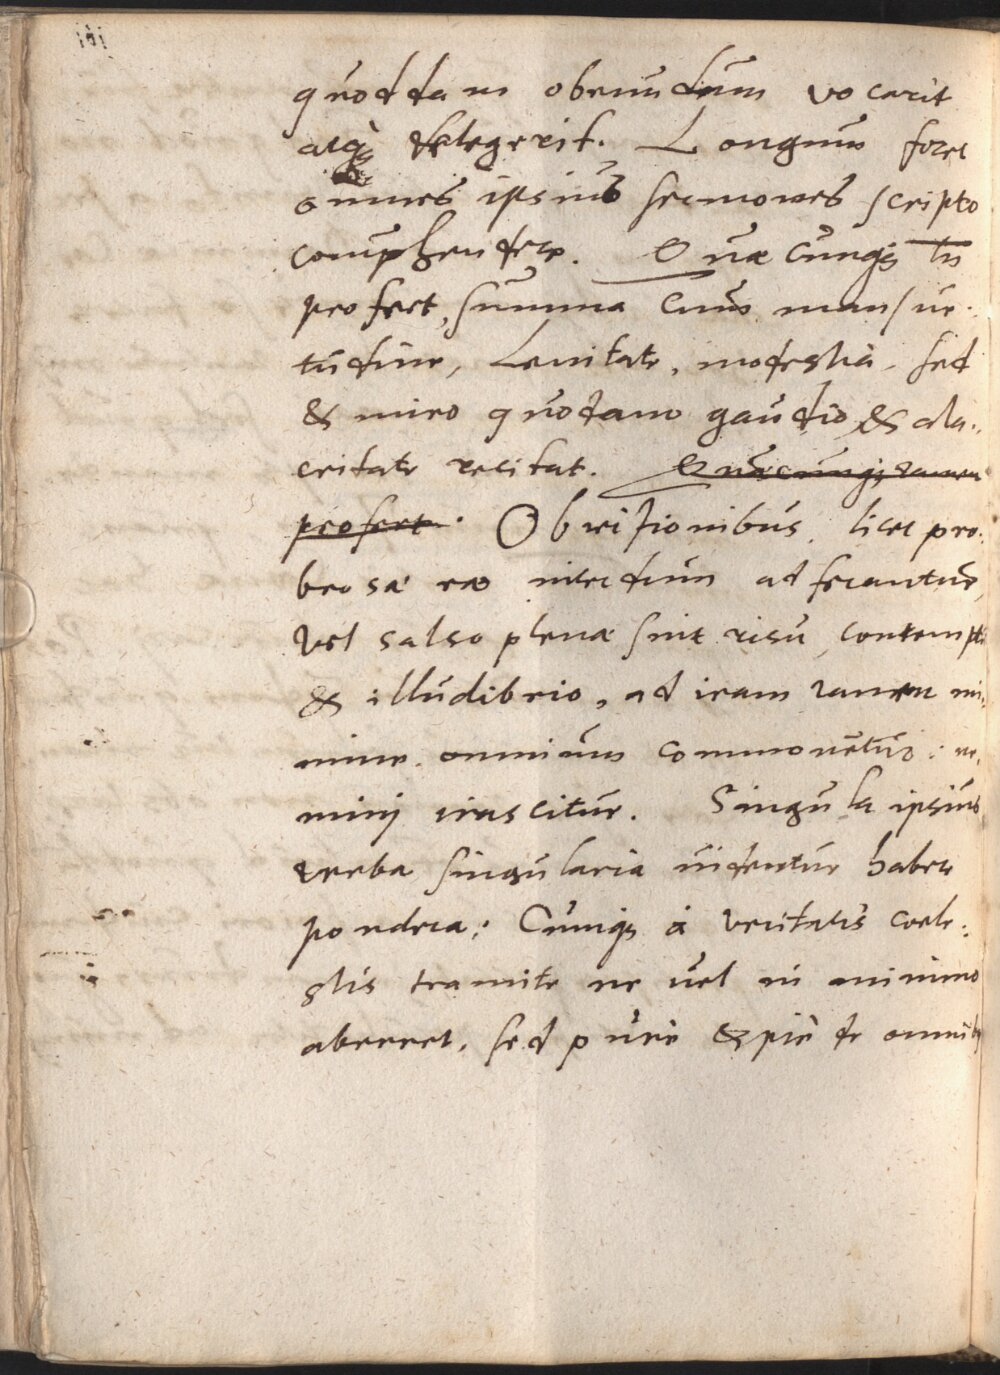 quoddam obeundum vocarit
atq₃ delegerit. Longum foret
omnes ipsius sermones scripto
comp̄hendere. Quæcunq₃ tn̄
profert, summa cum mansue-
tudine, Lenitate, modestia, sed
& miro quodam gaudio & ala-
critate recitat. Quæcunq₃ tamen
profert. Obiectionibus, licet pro-
brosæ eæ interdum adferantur,
vel salso plenæ sint risu, contemptu
& illudibrio, ad iram tamen mi-
nime omnium commouetur: ne-
mini irascitur. Singula ipsius
verba singularia uidentur habere
pondera: Cumq₃ à veritatis coele-
stis tramite ne uel in minimo
aberret, sed purè & piè de omnib₃